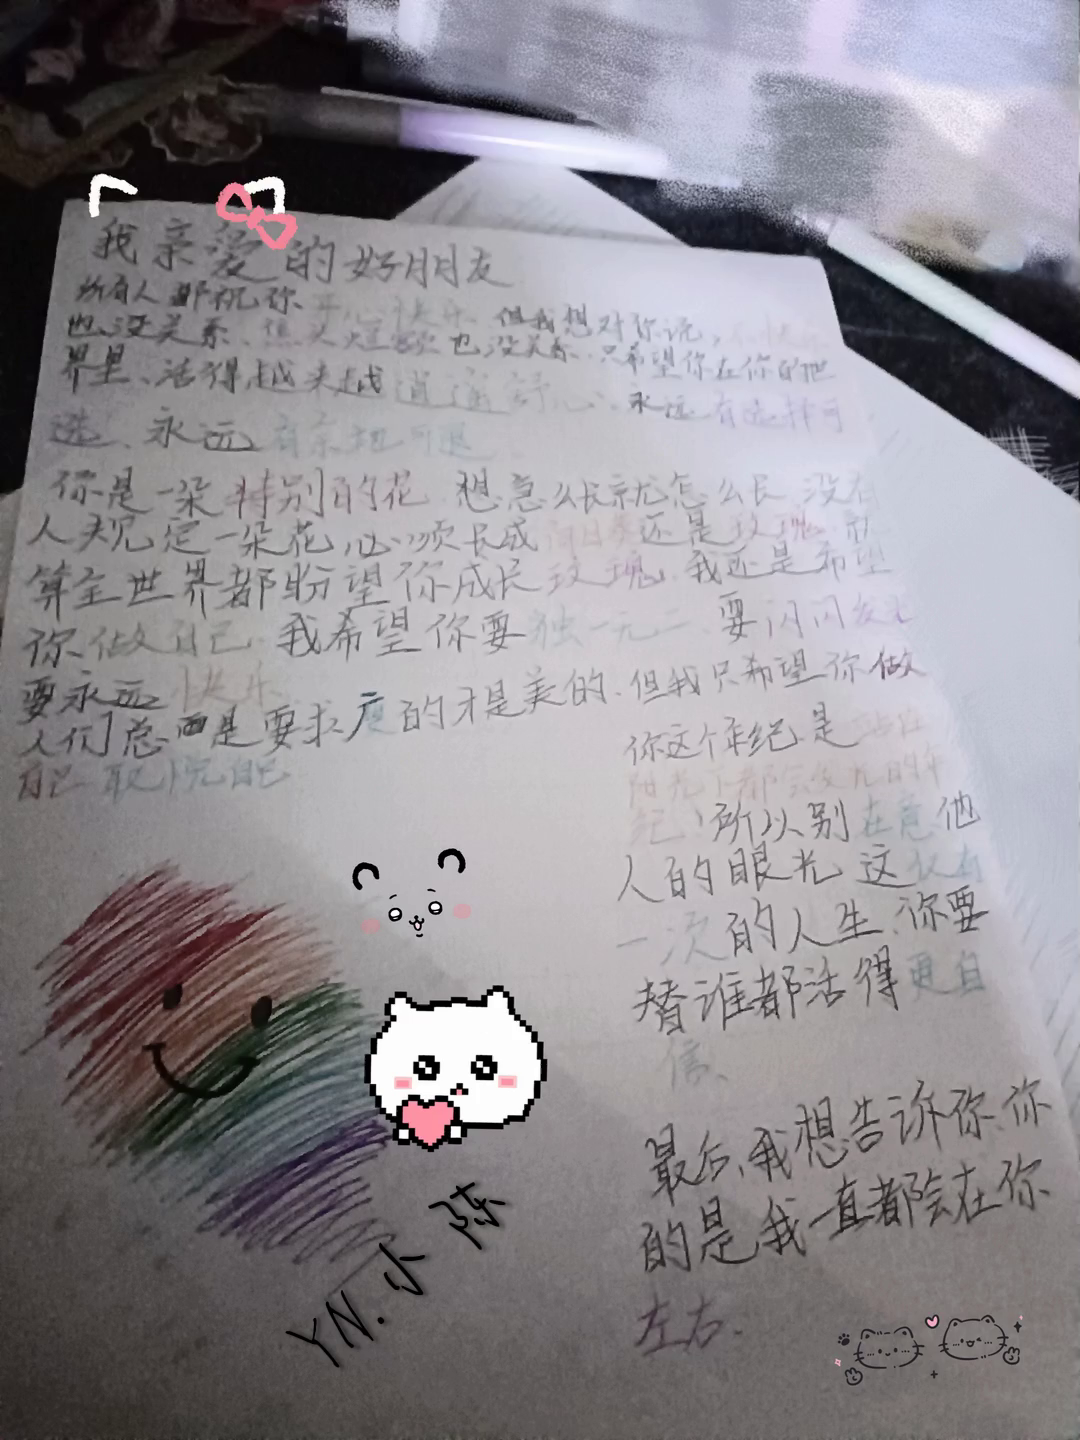 我亲爱的好朋友
所有人都祝你开心快乐、但我想对你说,不快乐
也没关系、焦头烂额也没关系.只希望你在你的世
界里、活得越来越逍遥舒心、永远有选择可
选、永远有余地可退
你是一朵特别的花 想怎么长就怎么长 没有
人规定一朵花必须长成向日葵还是玫瑰 就
算全世界都盼望你成长玫瑰、我还是希望
你做自己.我希望你要独一无二、要闪闪发光
要永远快乐
人们总是要求瘦的才是美的.但我只希望你做
自己取悦自己
你这个年纪是站在
阳光下都会发光的年
纪!所以别在意他
人的眼光 这仅有
一次的人生、你要
替谁都活得更自
信、
最后、我想告诉你、你
的是我一直都会在你
左右.
YN.小陈